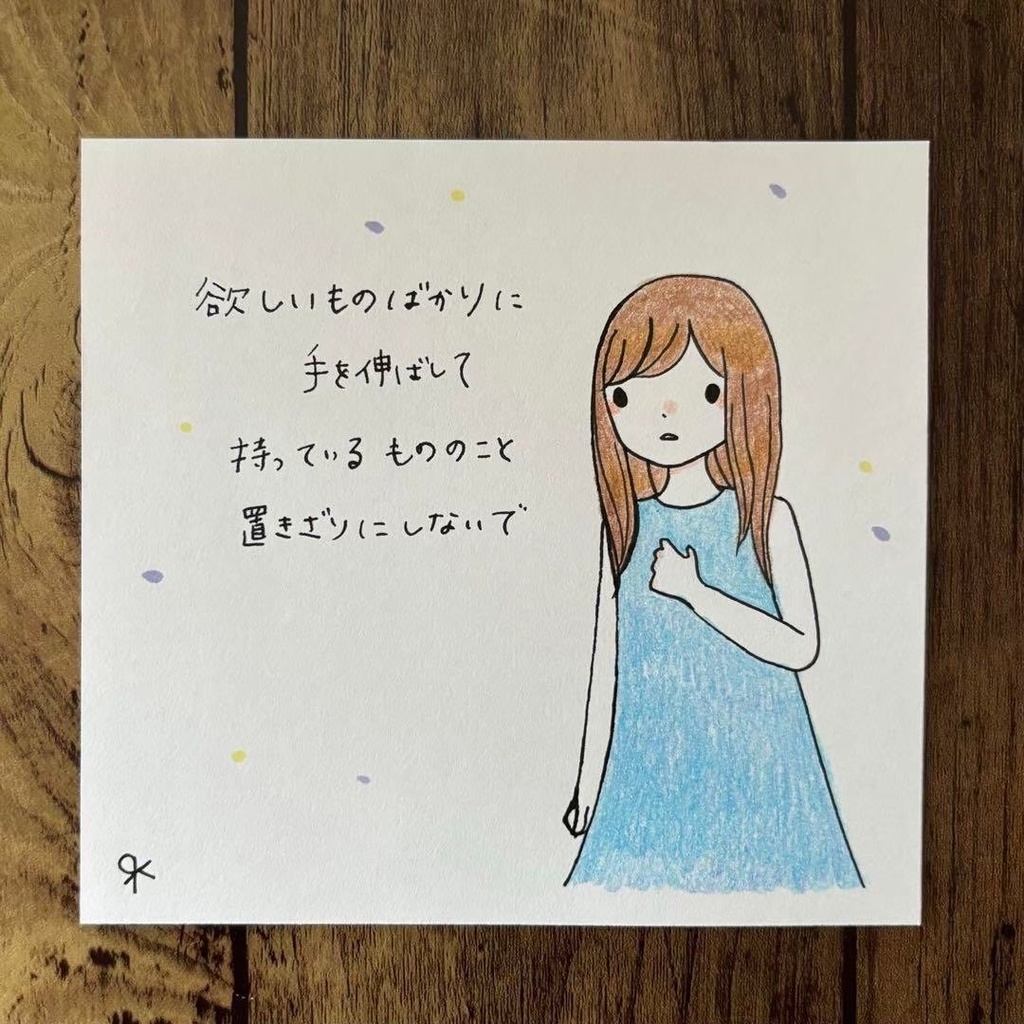 欲しいものばかりに
手を伸ばして
持っている もののこと
置きざりにしないで